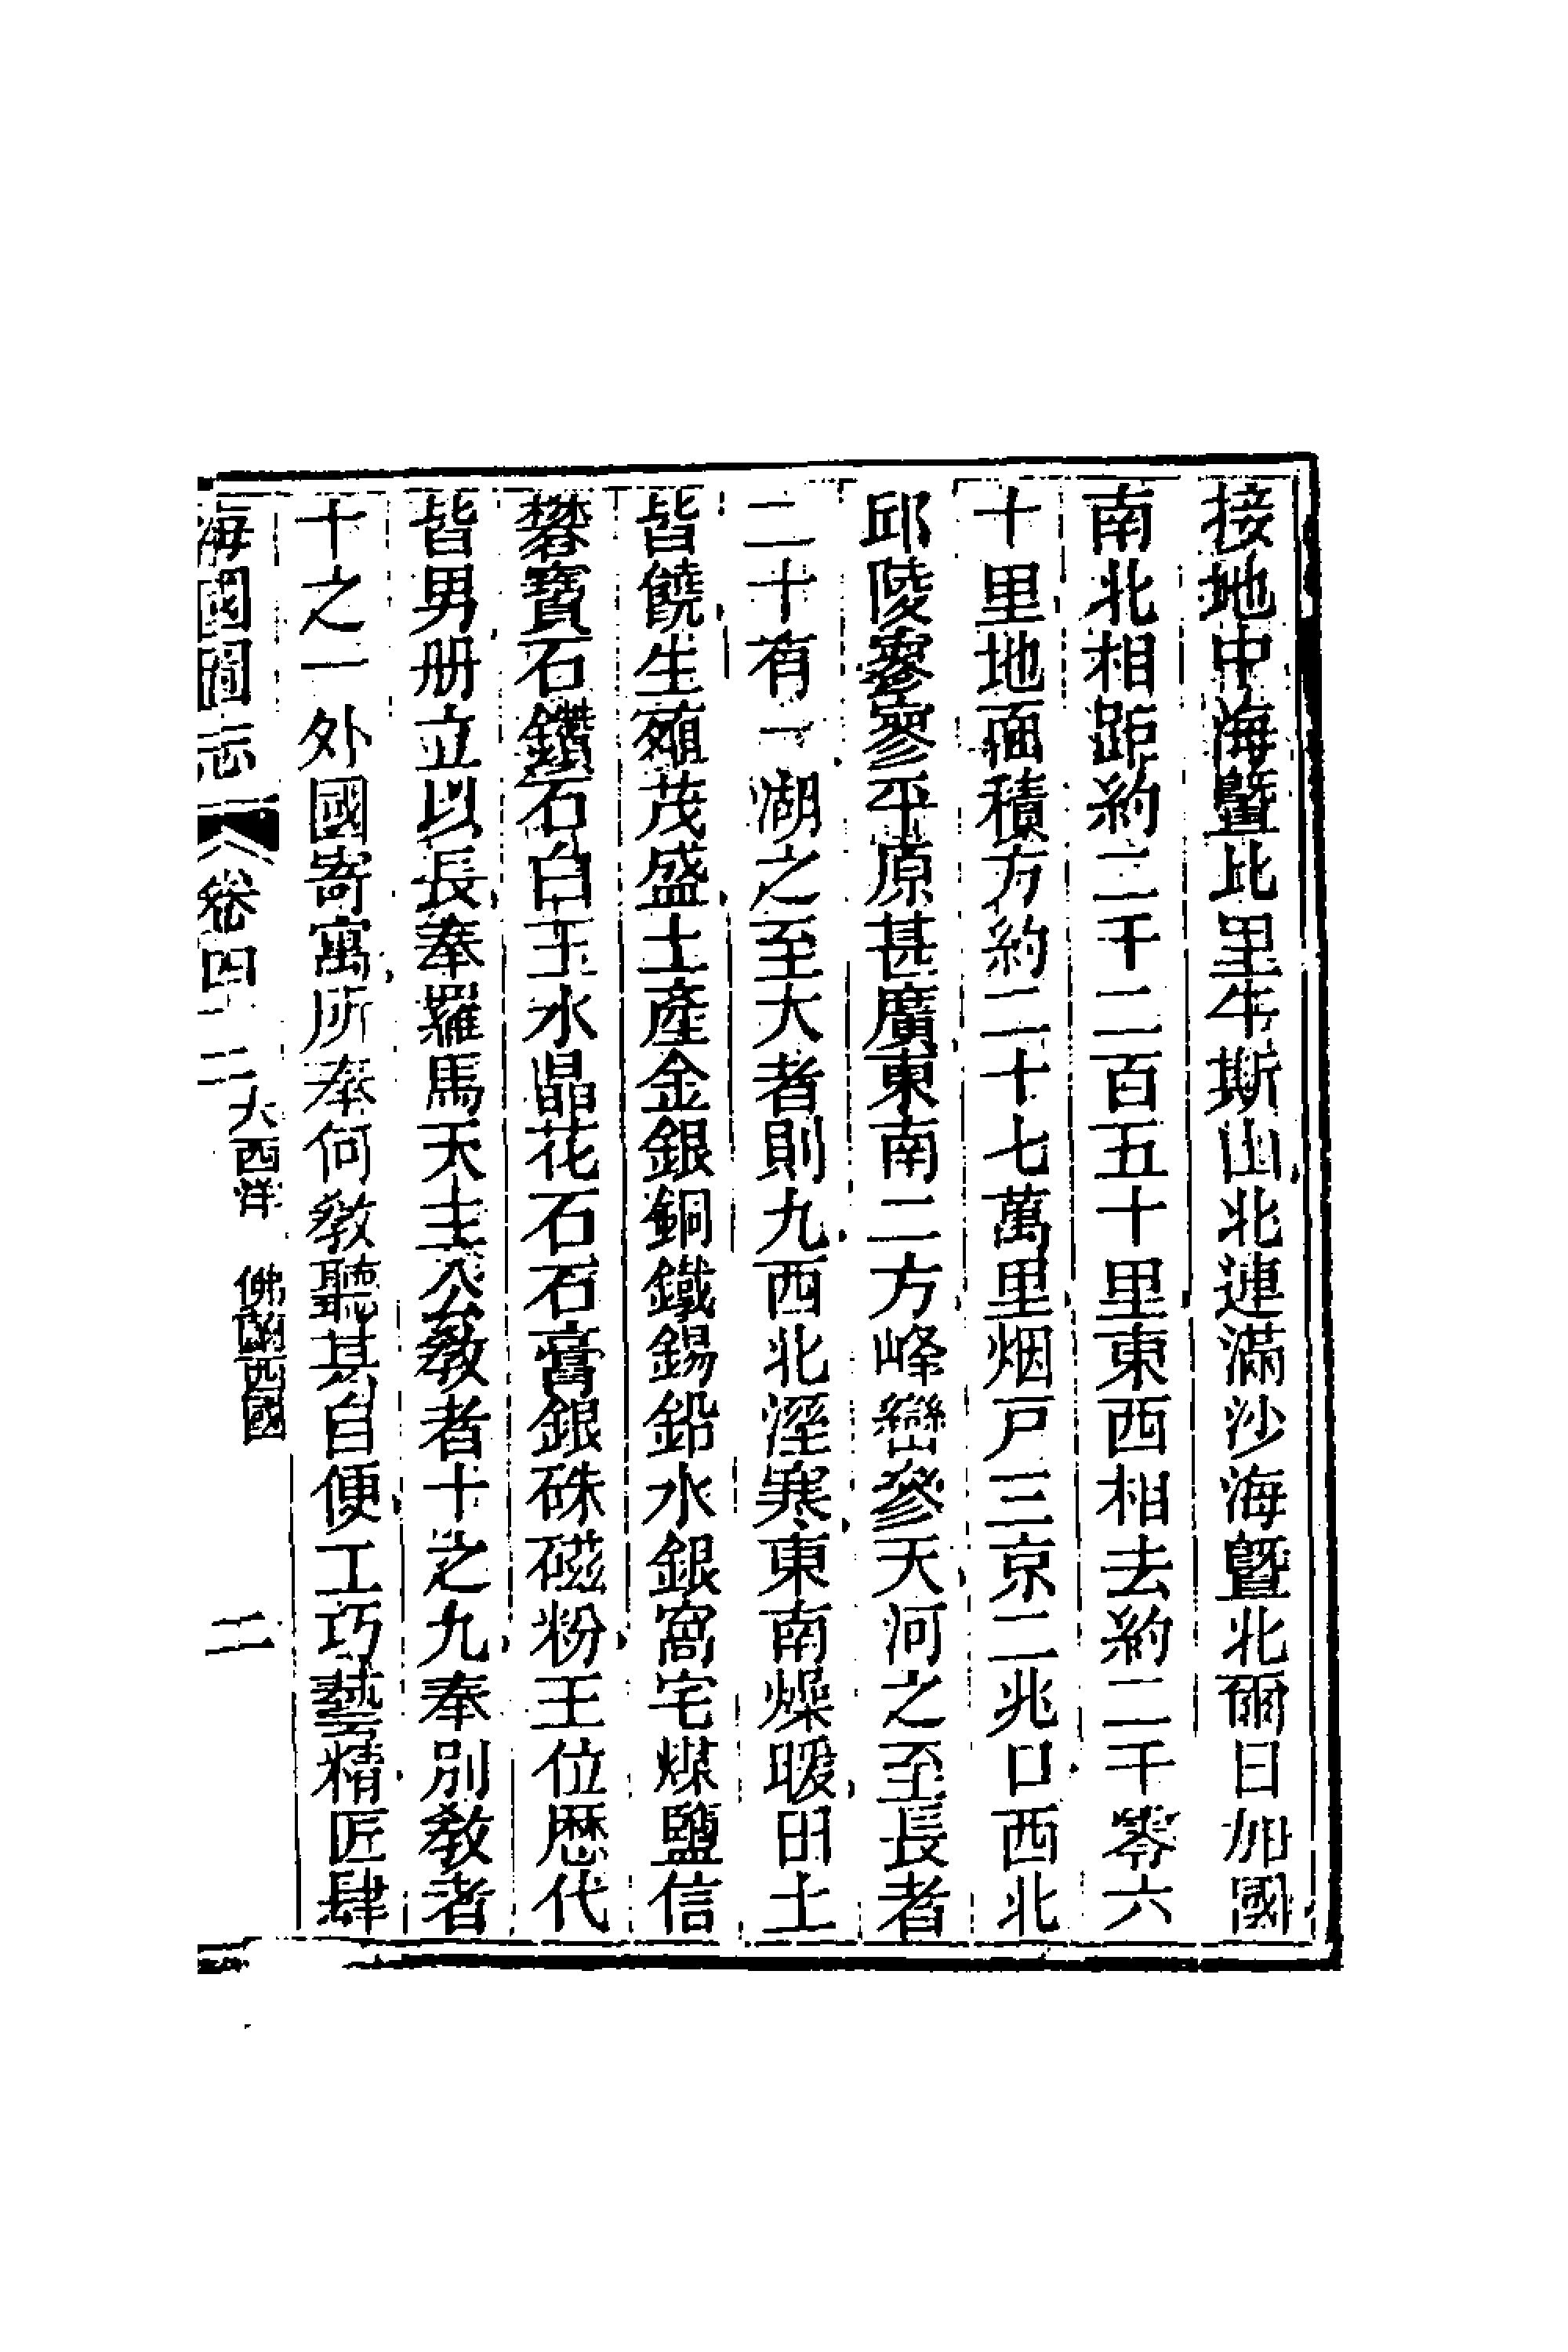 接地中海曁比里牛斯山北連滿沙海曁北爾日加國
南北相距約二千二百五十里東西相去約二千零六
十里地面積方約二十七萬里烟戸三京二兆口西北
邱陵寥寥平原甚廣東南二方峰巒參天河之至長者
二十有一湖之至大者則九西北溼寒東南燥暖田土
皆饒生殖茂盛土產金銀銅鐵錫鉛水銀窩宅煤鹽信
礬寶石鑽石白玉水晶花石石膏銀硃磁粉王位歴代
皆男册立以長奉羅馬天主公教者十之九奉別教者
十之一外國寄寓所奉何教聽其自便工巧藝精匠肆
海國圖志 卷四十二 大西洋 佛蘭西國 二